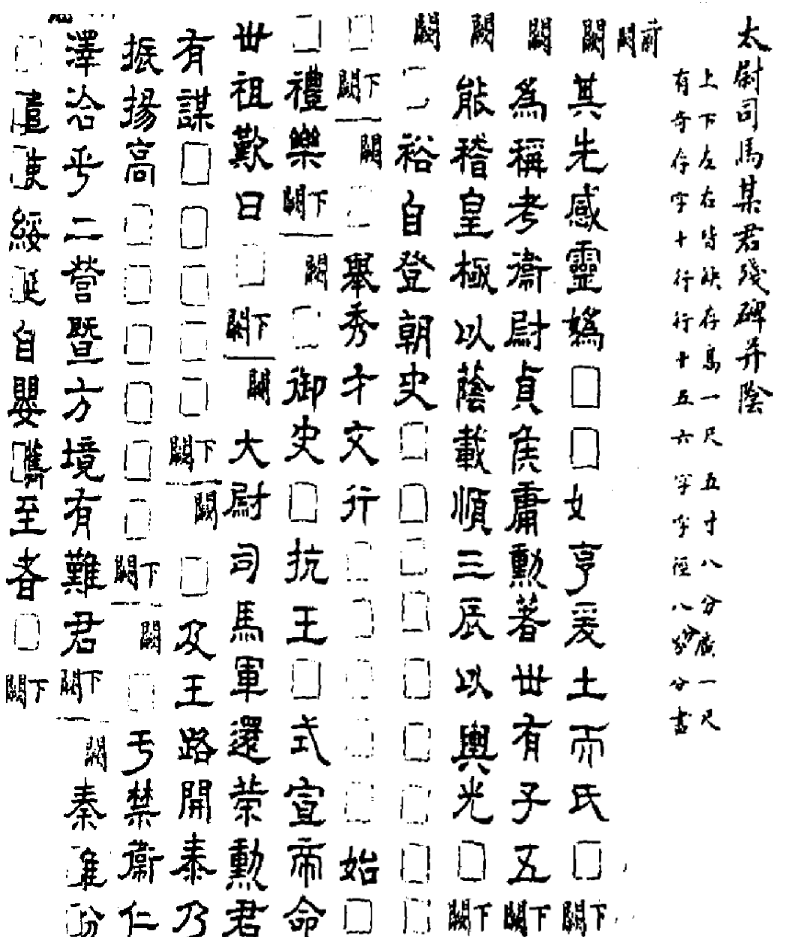 太尉司馬某君殘碑并陰
上下左右皆缺存高一尺五寸八分廣一尺
有奇存字十行行十五六字字徑八分分書
前闕
闕其先感靈□□女亨爰土而氏□下闕
闕為稱考衛尉貞侯庸勳著世有子五下闕
闕能稽皇極以蔭載順三辰以輿光□下闕
闕□裕自登朝史□□□□□□□□□
□下闕闕□舉秀才文行□□□□□始□
□禮樂下闕闕□御史□抗王□式宣帝命
世祖歎曰□下闕闕大尉司馬軍還荣勳君
有謀□□□□□下闕闕□及王路開泰乃
振揚高□□□□□□下闕闕□于禁衛仁
澤洽乎二營暨方境有難君下闕闕秦雍汾
□遣東綏延自嬰舊至者□下闕